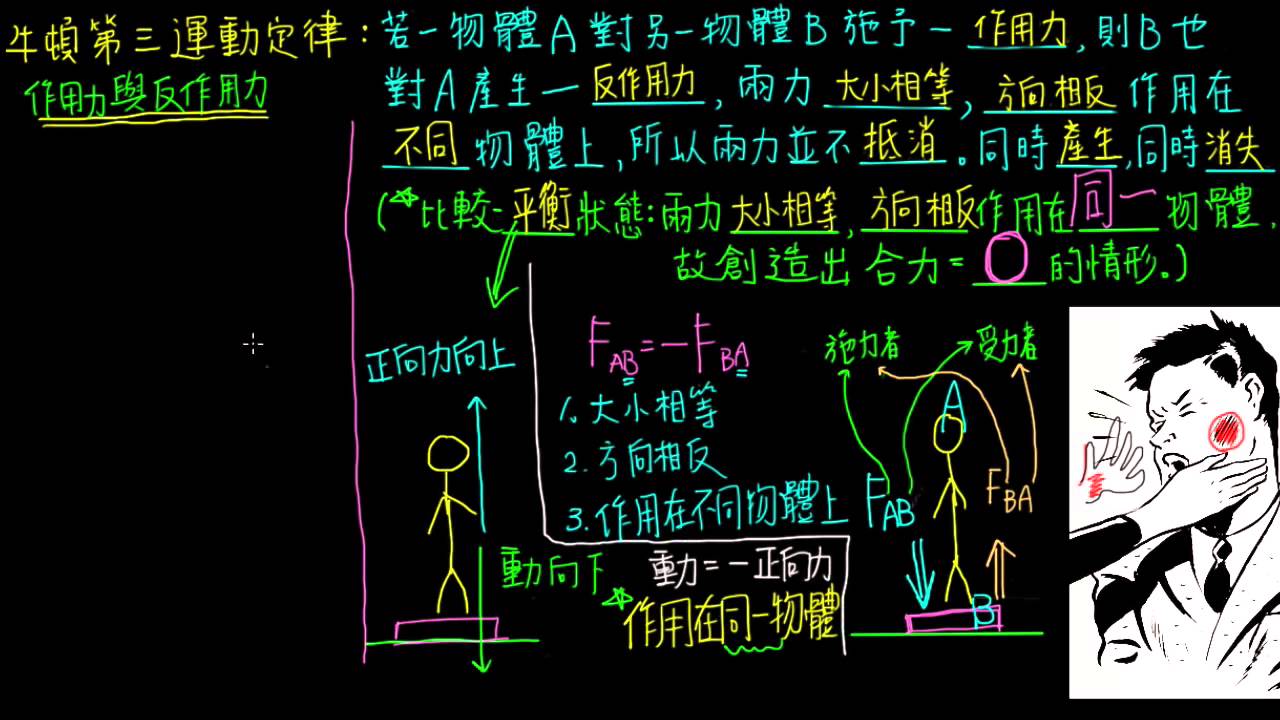 牛頓第三運動定律:若一物體A對另一物體B施予一作用力,則B也
作用力與反作用力
對A產生一反作用力,兩力大小相等,方向相反作用在
不同物體上,所以兩力並不抵消。同時產生,同時消失
(*比較-平衡狀態:兩力大小相等,方向相反作用在同一物體,
故創造出合力=0的情形。)
正向力向上
重力向下
F_AB=-F_BA
1. 大小相等
2. 方向相反
3. 作用在不同物體上
重力=-正向力
*作用在同一物體
施力者
受力者
A
F_AB
F_BA
B